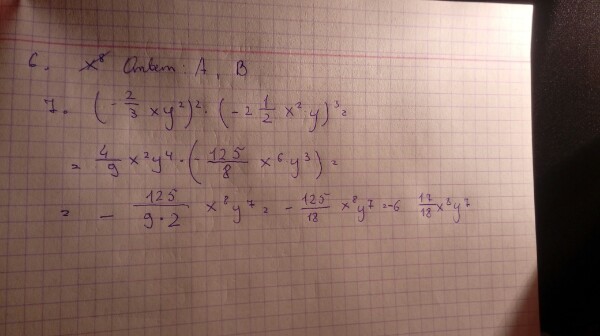 6. x⁸ Ответ: A, B
7. (-2/3 xy²)²·(-2 1/2 x² y)³=
= 4/9 x²y⁴·(-125/8 x⁶y³)=
= - 125/9·2 x⁸y⁷= - 125/18 x⁸y⁷=-6 17/18 x⁸y⁷